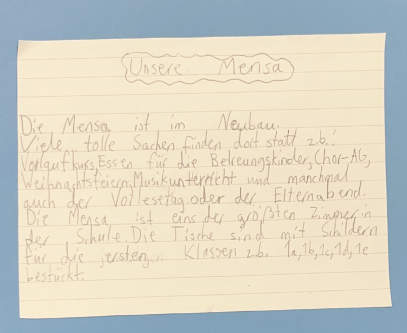 Unsere Mensa
Die Mensa ist im Neubau.
Viele tolle Sachen finden dort statt z.b.:
Vorlaufkurs, Essen für die Betreungskinder, Chor-AG,
Weihnachtsfeiern, Musikunterricht und manchmal
auch der Vorlesetag oder der Elternabend.
Die Mensa ist eins der größten Zimmer in
der Schule. Die Tische sind mit Schildern
für die ersten Klassen z.b. 1a, 1b, 1c, 1d, 1e
bestückt.